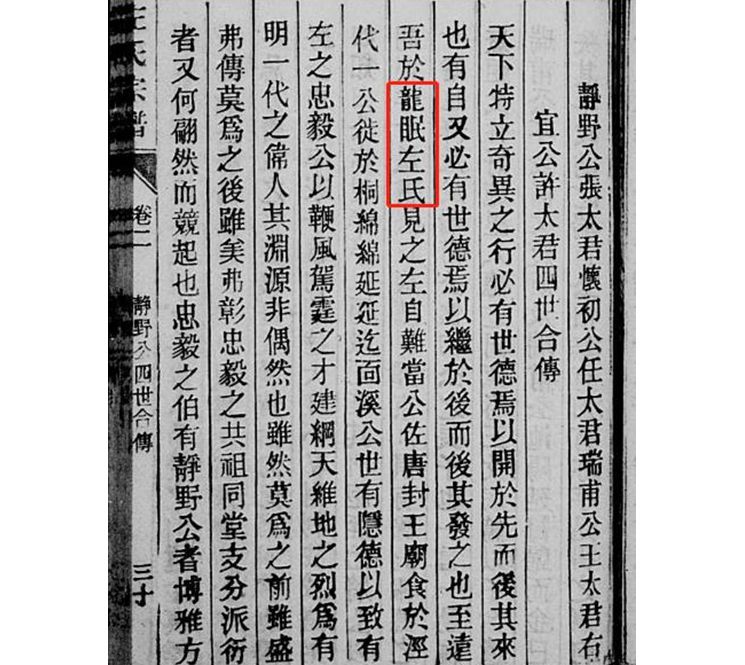 靜野公張太君懷初公任太君瑞甫公王太君右
宜公許太君四世合傳
天下特立奇異之行必有世德焉以開於先而後其來
也有自又必有世德焉以繼於後而後其發之也至遠
吾於龍眠左氏見之左自難當公佐唐封王廟食於涇
代一公徙於桐綿綿延延迄面溪公世有隱德以致有
左之忠毅公以鞭風駕霆之才建綱天維地之烈爲有
明一代之偉人其淵源非偶然也雖然莫爲之前雖盛
弗傳莫爲之後雖美弗彰忠毅之共祖同堂支分派衍
者又何翩然而競起也忠毅之伯有靜野公者博雅方
左氏宗譜
卷二
靜野公四世合傳
三十